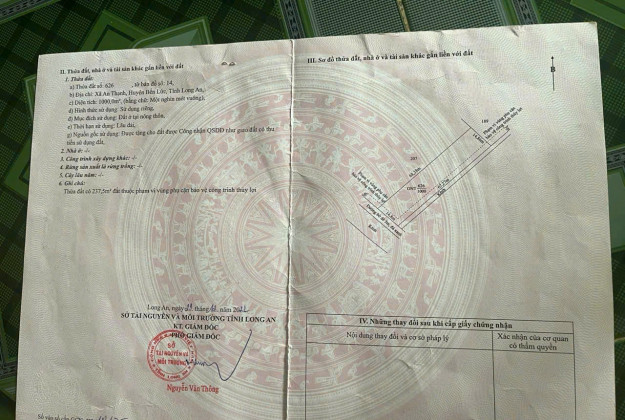 II. Thửa đất, nhà ở và tài sản khác gắn liền với đất
1. Thửa đất:
a) Thửa đất số: 626 , tờ bản đồ số: 14,
b) Địa chỉ: Xã An Thạnh, Huyện Bến Lức, Tỉnh Long An,
c) Diện tích: 1000,0m², (bằng chữ: Một nghìn mét vuông),
d) Hình thức sử dụng: Sử dụng riêng,
đ) Mục đích sử dụng: Đất ở tại nông thôn,
e) Thời hạn sử dụng: Lâu dài,
g) Nguồn gốc sử dụng: Được tặng cho đất được Công nhận QSDĐ như giao đất có thu
tiền sử dụng đất.
2. Nhà ở: -/-
3. Công trình xây dựng khác: -/-
4. Rừng sản xuất là rừng trồng: -/-
5. Cây lâu năm: -/-
6. Ghi chú:
Thửa đất có 237,5m² đất thuộc phạm vi vùng phụ cận bảo vệ công trình thủy lợi
Long An, ngày tháng năm
SỞ TÀI NGUYÊN VÀ MÔI TRƯỜNG TỈNH LONG AN
KT. GIÁM ĐỐC
PHÓ GIÁM ĐỐC
SỞ
TÀI NGUYÊN VÀ
MÔI TRƯỜNG
Nguyễn Văn Thông
III. Sơ đồ thửa đất, nhà ở và tài sản khác gắn liền với đất
B
Phạm vi vùng phụ cận
bảo vệ công trình thủy lợi
Phạm vi vùng phụ cận
bảo vệ công trình thủy lợi
626
1000
Kênh
Kênh
IV. Những thay đổi sau khi cấp giấy chứng nhận
Nội dung thay đổi và cơ sở pháp lý
Xác nhận của cơ quan
có thẩm quyền